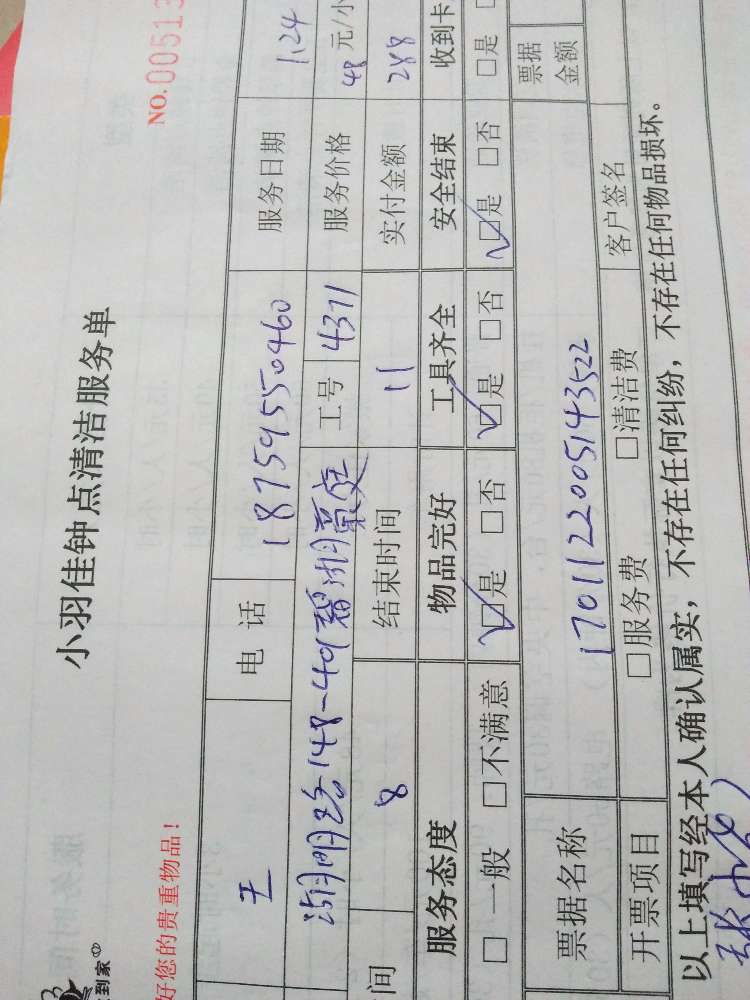 到家
小羽佳钟点清洁服务单
NO.00513
好您的贵重物品！
王 电 话 18759550460 服务日期 1.24
湖明路148-409碧湖豪庭 工号 4371 服务价格 48 元/小
间 8 结束时间 11 实付金额 288
服务态度 物品完好 工具齐全 安全结束 收到卡
□ 一般 □ 不满意 □是 □否 □是 □否 □是 □否 □是
票据名称 1701122005143522 票据金额
开票项目 □服务费 □清洁费 客户签名
以上填写经本人确认属实，不存在任何纠纷，不存在任何物品损坏。